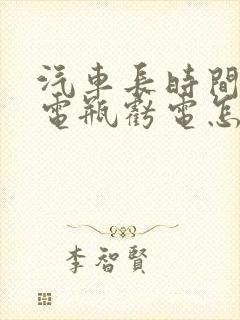 汽車長時間
電瓶虧電怎
李智賢